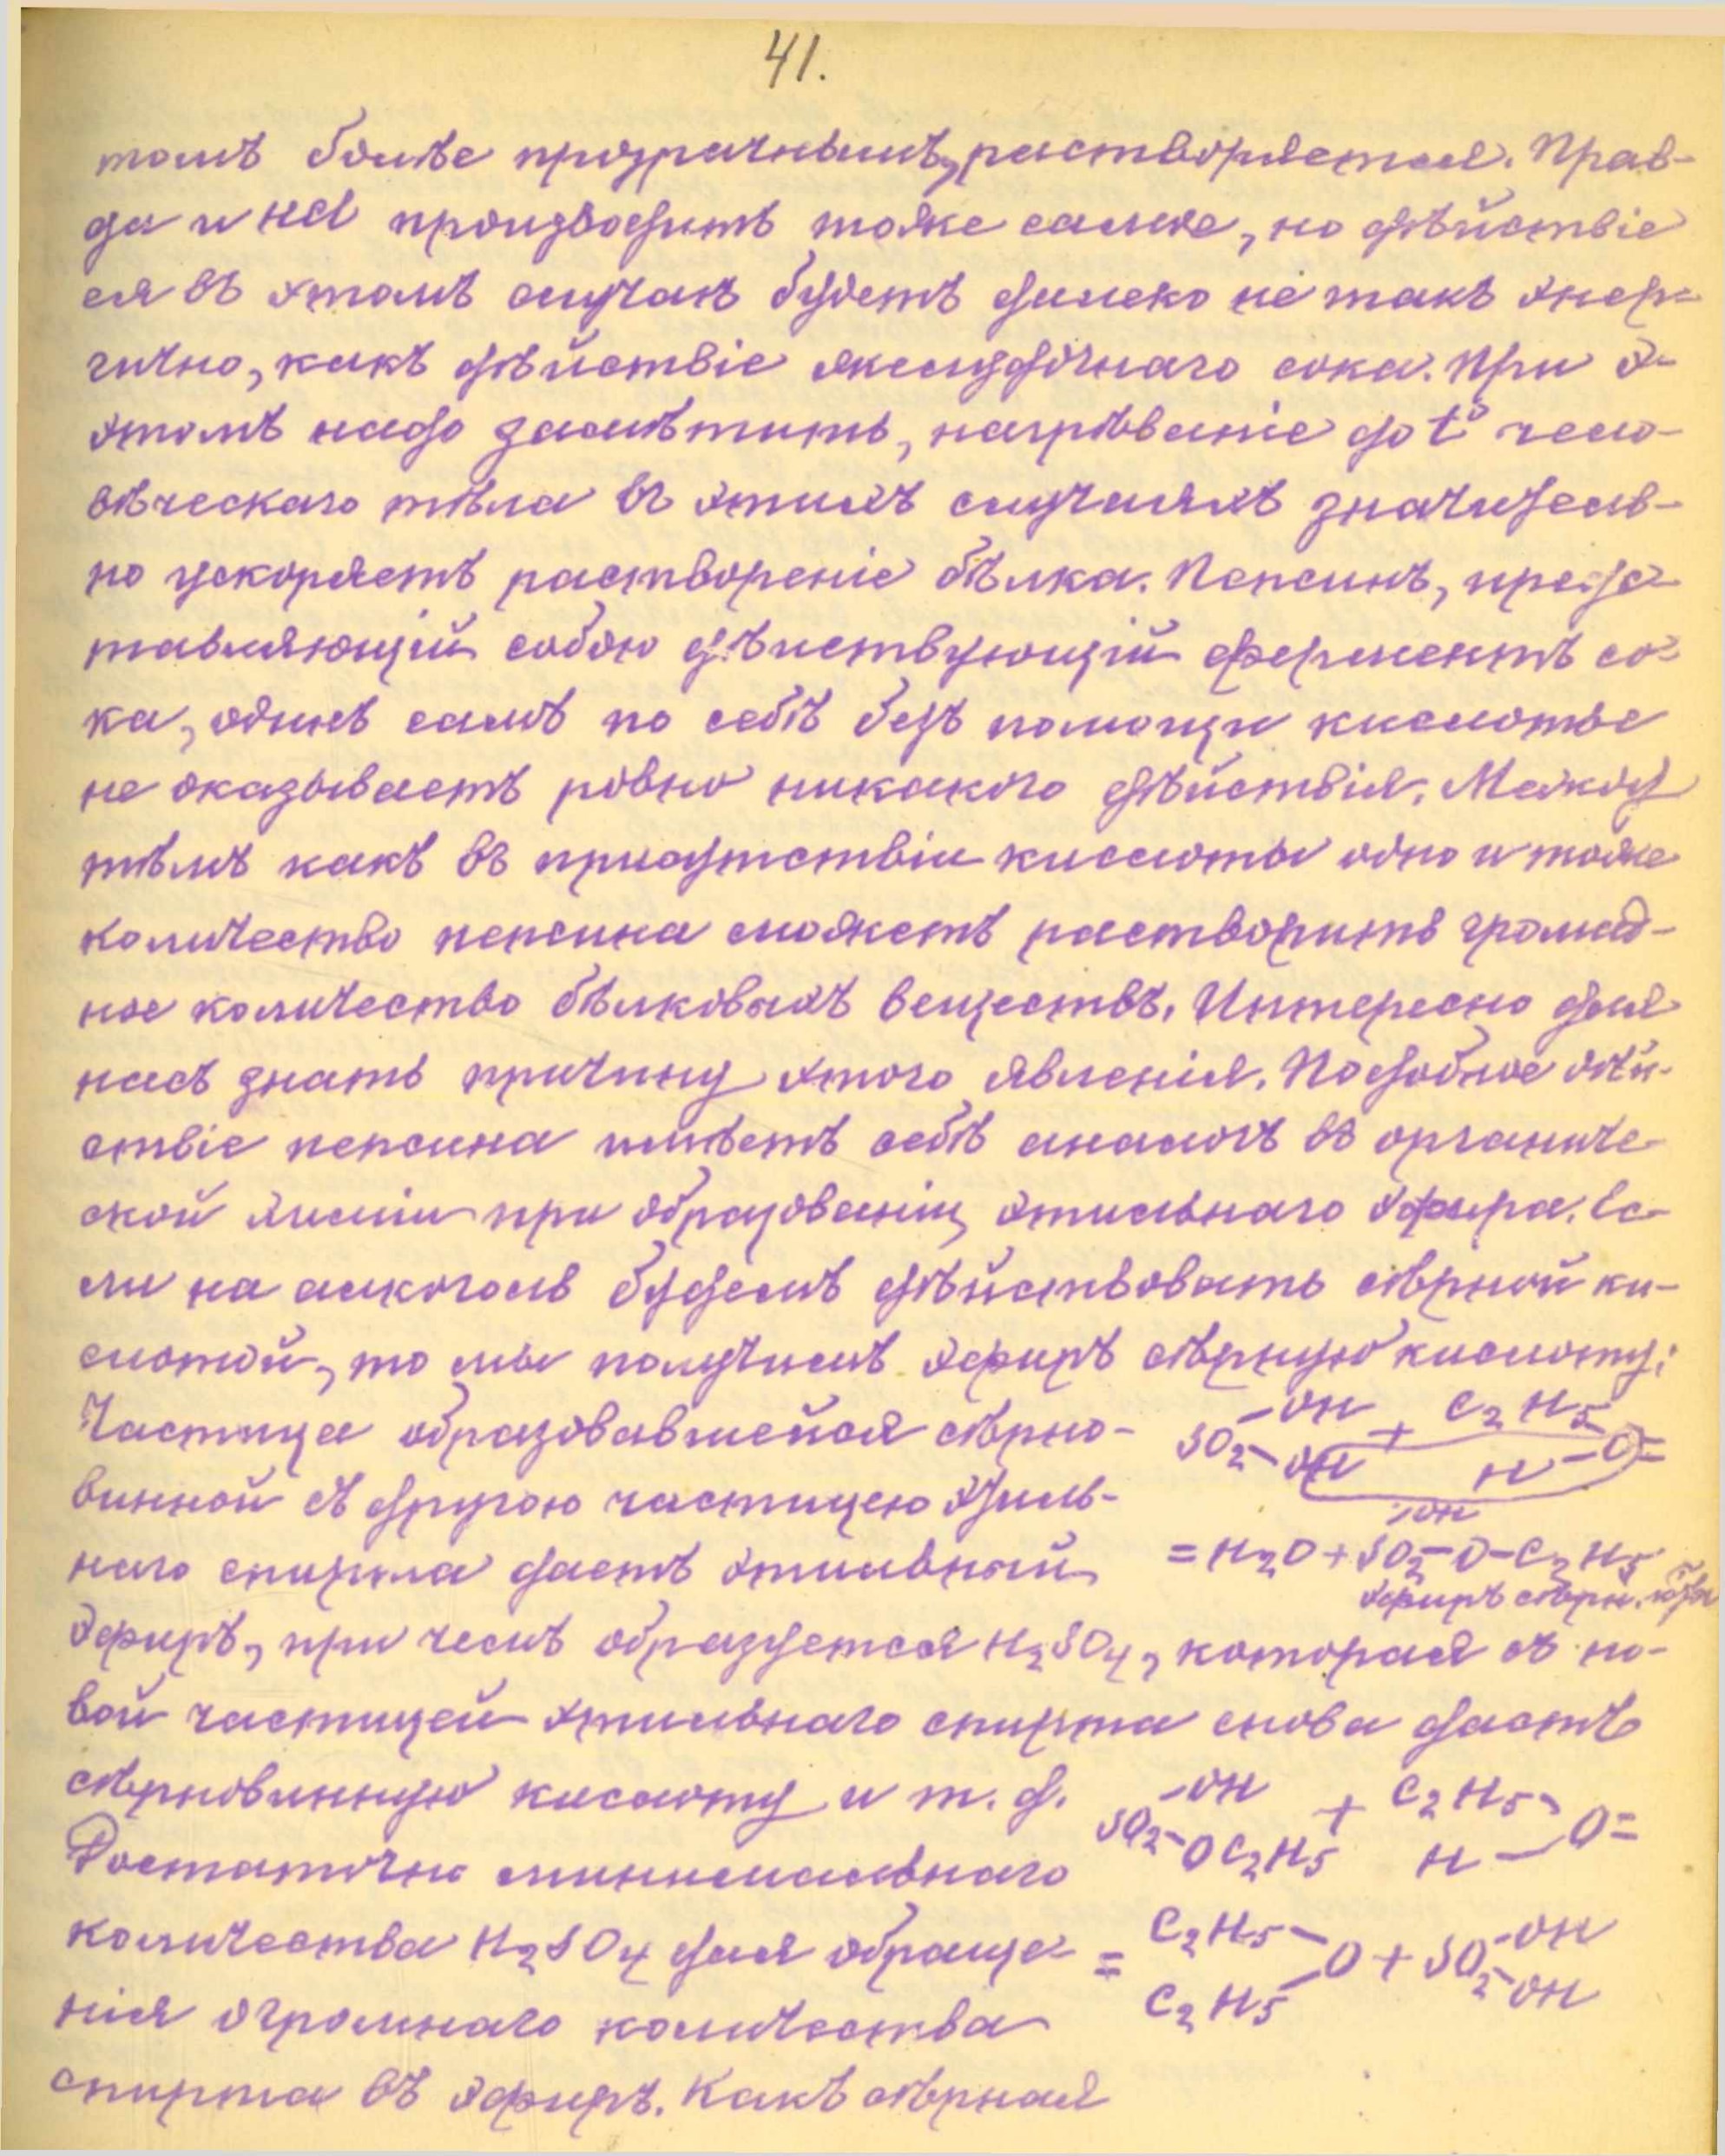 41.
томъ болѣе прозрачнымъ, растворяется. Прав-
да и HCl производитъ тоже самое, но дѣйствіе
ея въ этомъ случаѣ будетъ далеко не такъ энер-
гично, какъ дѣйствіе желудочнаго сока. При э-
этомъ надо замѣтить, нагрѣваніе до t° чело-
вѣческаго тѣла въ этихъ случаяхъ значитель-
но ускоряетъ раствореніе бѣлка. Пепсинъ, предс-
тавляющій собою дѣйствующій ферментъ со-
ка, одинъ самъ по себѣ безъ помощи кислоты
не оказываетъ ровно никакого дѣйствія. Между
тѣмъ какъ въ присутствіи кислоты одно и тоже
количество пепсина можетъ растворить громад-
ное количество бѣлковыхъ веществъ. Интересно для
насъ знать причину этого явленія. Подобное дѣй-
ствіе пепсина имѣетъ себѣ аналогъ въ органиче-
ской химіи при образованіи этильнаго эфира. Ес-
ли на алкоголь будемъ дѣйствовать сѣрной ки-
слотой, то мы получимъ эфиръ сѣрную кислоту;
Частица образовавшейся сѣрно-
винной съ другою частицею этиль-
наго спирта даетъ этильный
эфиръ, при чемъ образуется H₂SO₄, которая съ но-
вой частицей этильнаго спирта снова даетъ
сѣрновинную кислоту и т. д.
Достаточно минимальнаго
количества H₂SO₄ для обраще-
нія огромнаго количества
спирта въ эфиръ. Какъ сѣрная
-OH + C₂H₅
SO₂-OH H-O=
-OH
=H₂O+SO₂-O-C₂H₅
эфиръ сѣрн.
-OH + C₂H₅-
SO₂-OC₂H₅ H-O=
= C₂H₅-O + SO₂-OH
C₂H₅ -OH